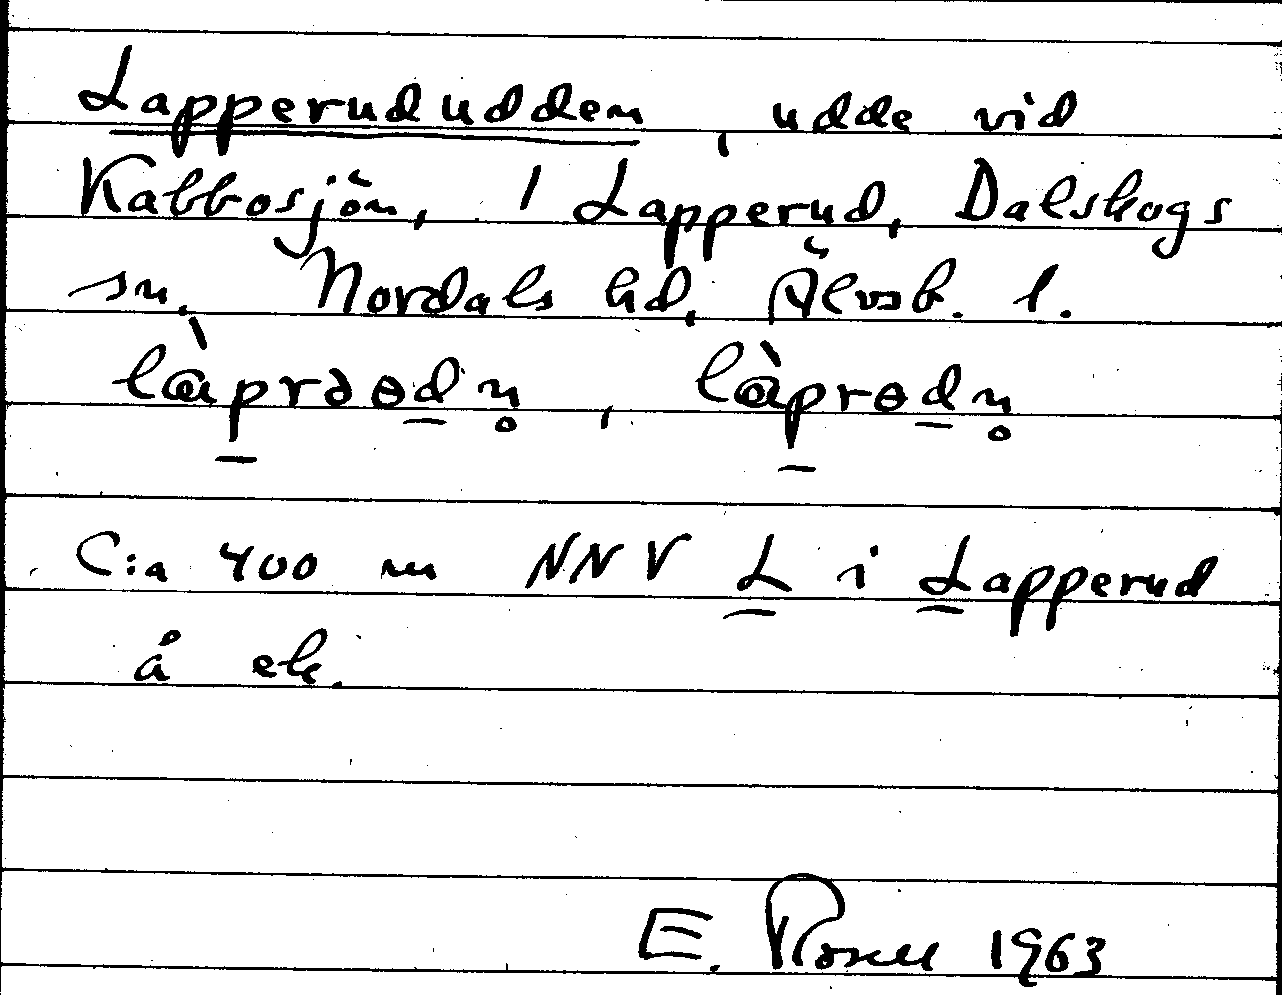 Lapperududden, udde vid
Kabbosjön, 1 Lapperud, Dalskogs
sn. Nordals hd, Älvsb. l.
là̱prəɵḏn̥, là̱prɵḏn̥
C:a 400 m NNV L i Lapperud
å ek.
E. Rosell 1963